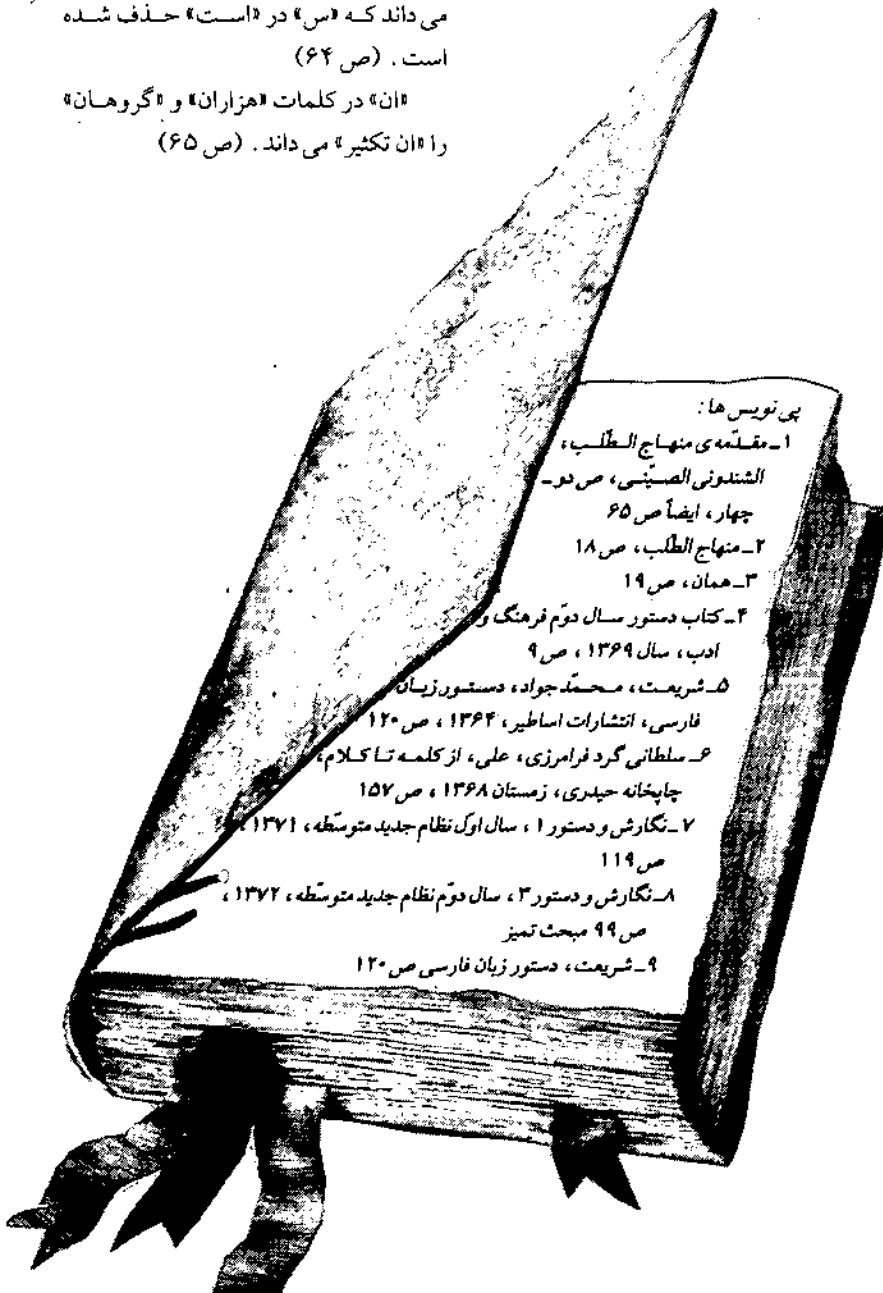 می‌داند کــه «س» در «اســت» حــذف شــده
است . (ص ۶۴)
«ان» در کلمات «هزاران» و «گروهــان»
را «ان تکثیر» می‌داند . (ص ۶۵)
پی‌نویس‌ها:
۱ـ مقـدّمه‌ی منهـاج الـطّلـب،
الشندونی الصــیّنــی، ص دو ـ
چهار، ایضاً ص ۶۵
۲ـ منهاج الطّلب، ص ۱۸
۳ـ همان، ص ۱۹
۴ـ کتاب دستور ســال دوّم فرهنگ و
ادب، سال ۱۳۶۹، ص ۹
۵ـ شریعــت، مــحــمّد جواد، دستــور زبــان
فارسی، انتشارات اساطیر، ۱۳۶۴، ص ۱۲۰
۶ـ سلطانی گرد فرامرزی، علی، از کلمــه تــا کــلام،
چاپخانه حیدری، زمستان ۱۳۶۸، ص ۱۵۷
۷ـ نگارش و دستور ۱، سال اوّل نظام جدید متوسّطه، ۱۳۷۱،
ص ۱۱۹
۸ـ نگارش و دستور ۳، سال دوّم نظام جدید متوسّطه، ۱۳۷۲،
ص ۹۹ مبحث تمیز
۹ـ شریعت، دستور زبان فارسی ص ۱۲۰